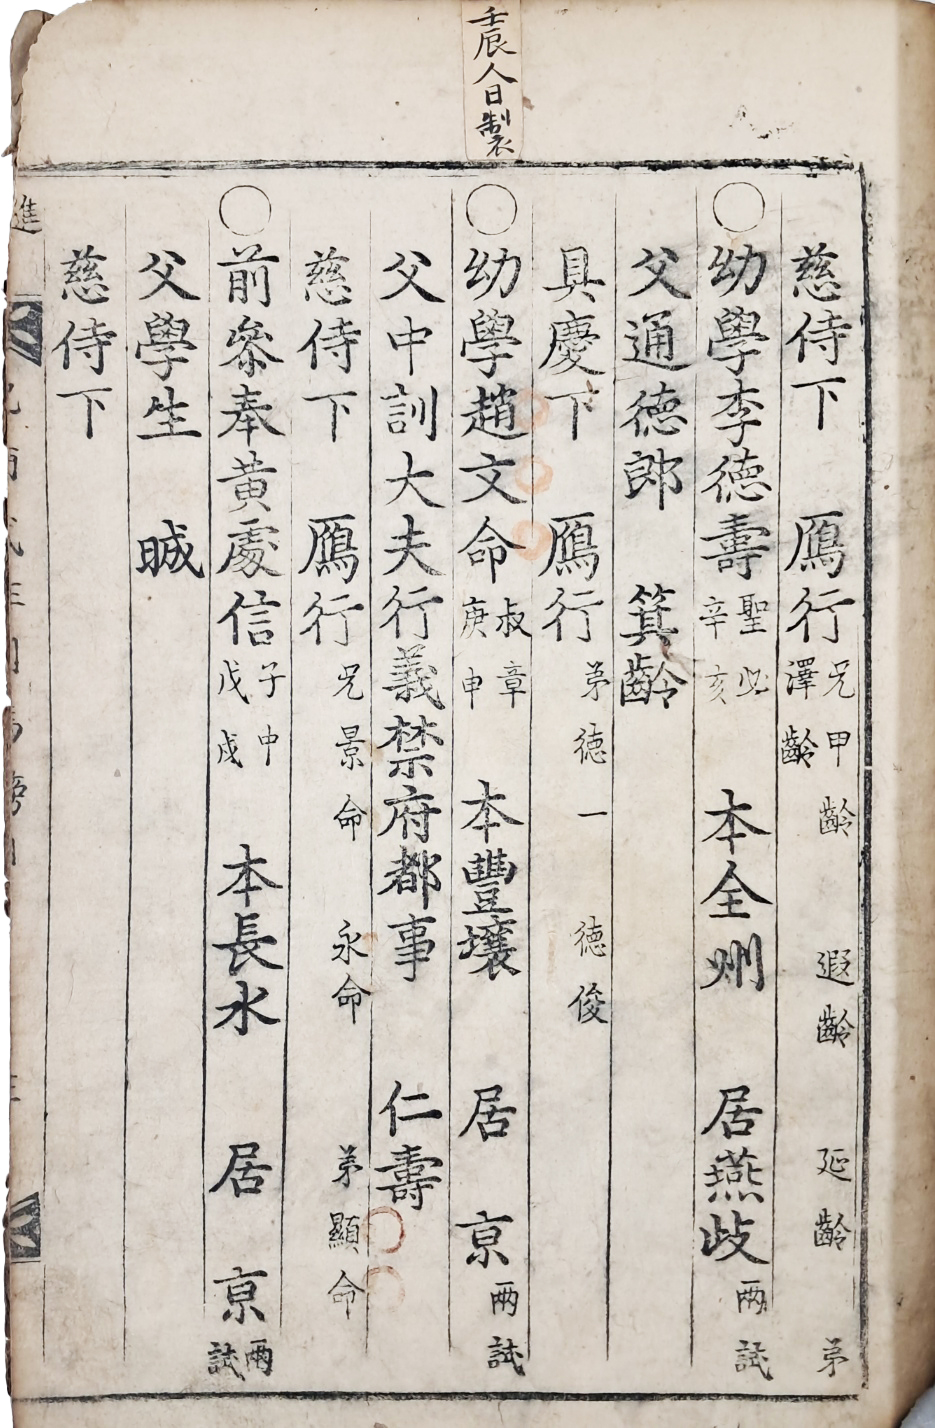 壬辰人日製
慈侍下 鴈行 兄甲齡 遐齡 延齡 弟澤齡
幼學李德壽 聖必 辛亥 本全州 居燕岐 兩試
父通德郎 箕齡
具慶下 鴈行 弟德一 德俊
幼學趙文命 叔章 庚申 本豐壤 居京 兩試
父中訓大夫行義禁府都事 仁壽
慈侍下 鴈行 兄景命 永命 弟顯命
前參奉黃處信 子中 戊戌 本長水 居京 兩試
父學生 晠
慈侍下
進